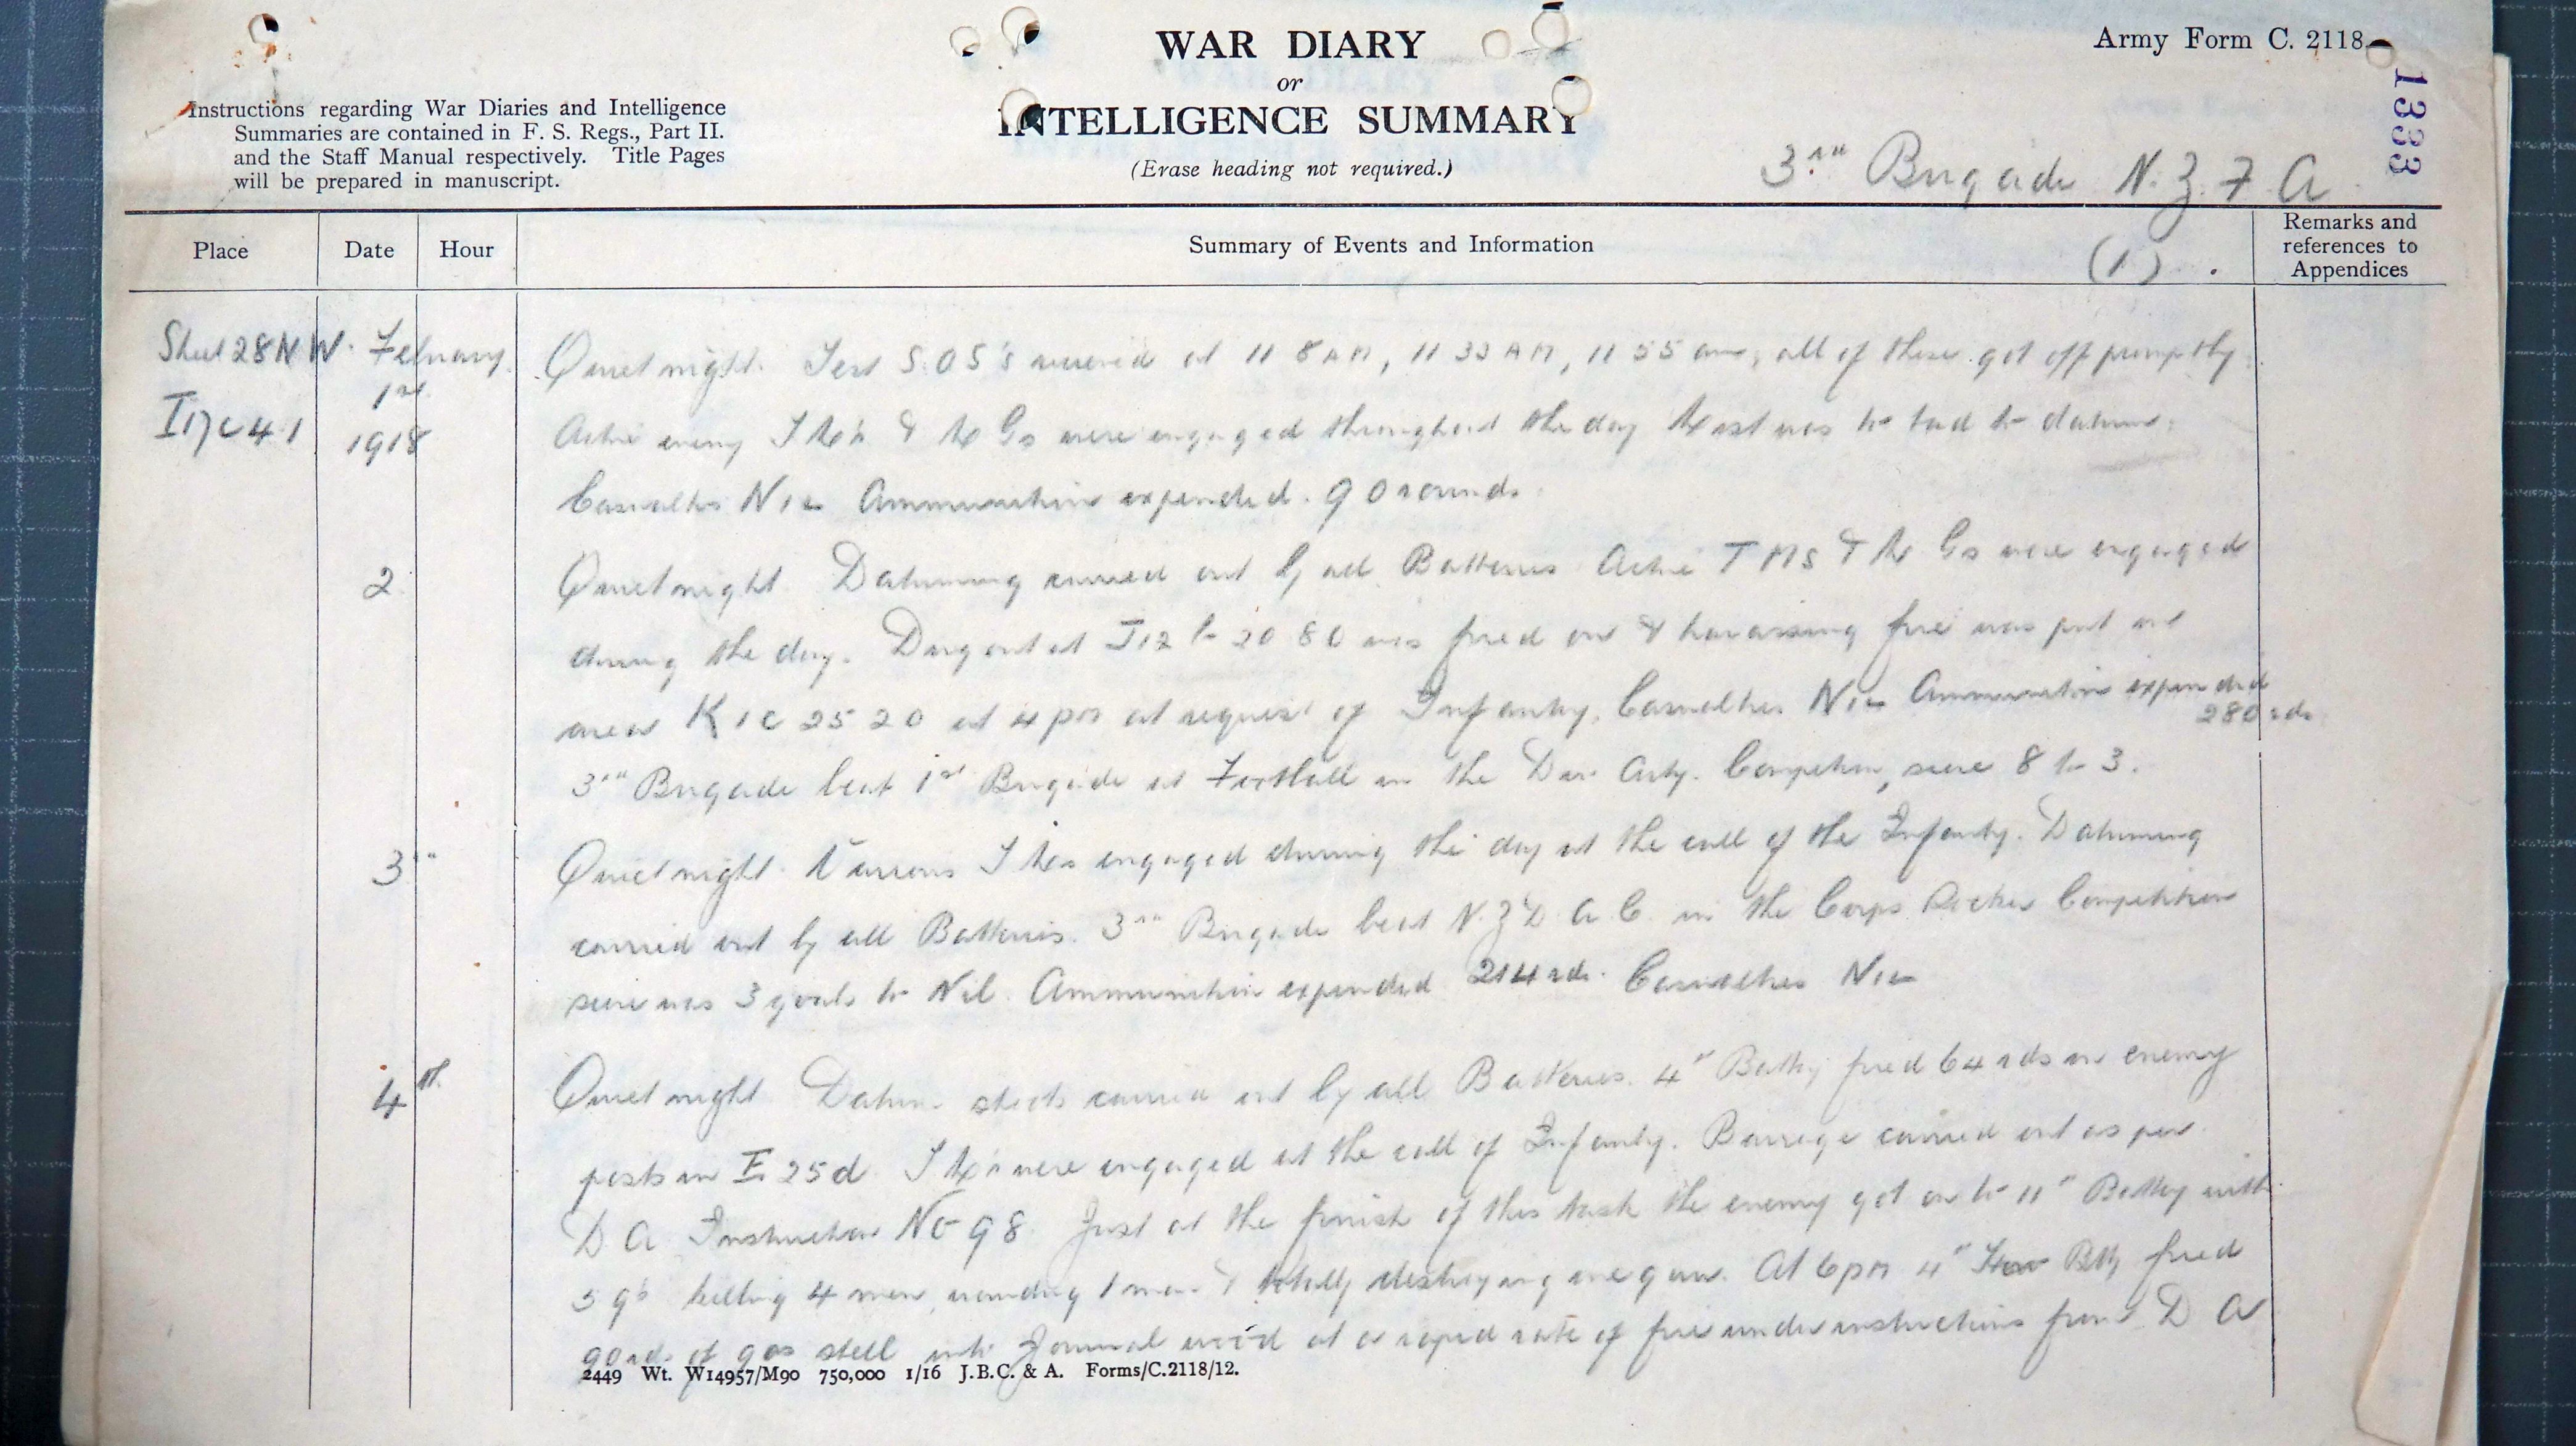 WAR DIARY
or
INTELLIGENCE SUMMARY
(Erase heading not required.)
Army Form C. 2118.
1333
Instructions regarding War Diaries and Intelligence
Summaries are contained in F. S. Regs., Part II.
and the Staff Manual respectively. Title Pages
will be prepared in manuscript.
3rd Brigade N. Z. F A
Place Date Hour Summary of Events and Information Remarks and references to Appendices
(1).
Sheet 28 N W. February 1st 1918
I 17 c 4 1
Quiet night. Test S.O S's received at 11 8 AM, 11 33 AM, 11 55 am, all of these got off promptly
Active enemy T & Gs were engaged throughout the day was to bad to datum.
Casualties Nil Ammunition expended. 90 rounds.
2 Quiet night Datuming carried out by all Batteries Active T MS & M Gs were engaged
during the day. Dug out at J12 b 20 80 was fired on & harassing fire was put on
area K 1 c 25 20 at 4 pm at request of Infantry. Casualties Nil Ammunition expended
280 rds
3rd Brigade beat 1st Brigade at Football in the Div. Arty. Competition, score 8 to 3.
3rd Quiet night. Various T Ms engaged during the day at the call of the Infantry. Datuming
carried out by all Batteries. 3rd Brigade beat N. Z D A C in the Corps Soccer Competition
score was 3 goals to Nil. Ammunition expended 214 rds. Casualties Nil
4th Quiet night Datum shoots carried out by all Batteries. 4" Battery fired 64 rds on enemy
posts in E 25 d. T Ms were engaged at the call of Infantry. Barrage carried out as per
D A Instruction No 98. Just at the finish of this task the enemy got on to 11" Battery with
5 9s killing 4 men, wounding 1 man & totally destroying one gun. At 6 pm 4" How Btty fired
90 rds of gas shell into wood at a rapid rate of fire under instructions from D A
2449 Wt. W14957/M90 750,000 1/16 J.B.C. & A. Forms/C.2118/12.